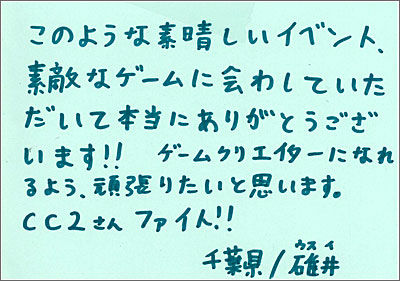 このような素晴しいイベント、
素敵なゲームに会わしていた
だいて本当にありがとうござ
います!! ゲームクリエイターになれ
るよう、頑張りたいと思います。
CC2さん ファイト!!
ウスイ
千葉県/碓井